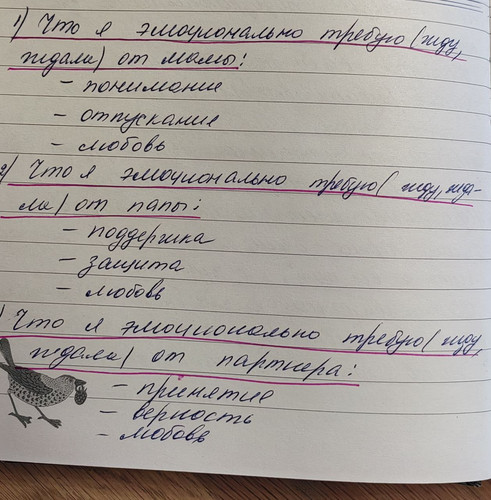 1) Что я эмоционально требую (жду,
ждала) от мамы:
- понимание
- отпускание
- любовь
2) Что я эмоционально требую (жду, жда-
ла) от папы:
- поддержка
- защита
- любовь
) Что я эмоционально требую (жду,
ждала) от партнера:
- принятие
- верность
- любовь